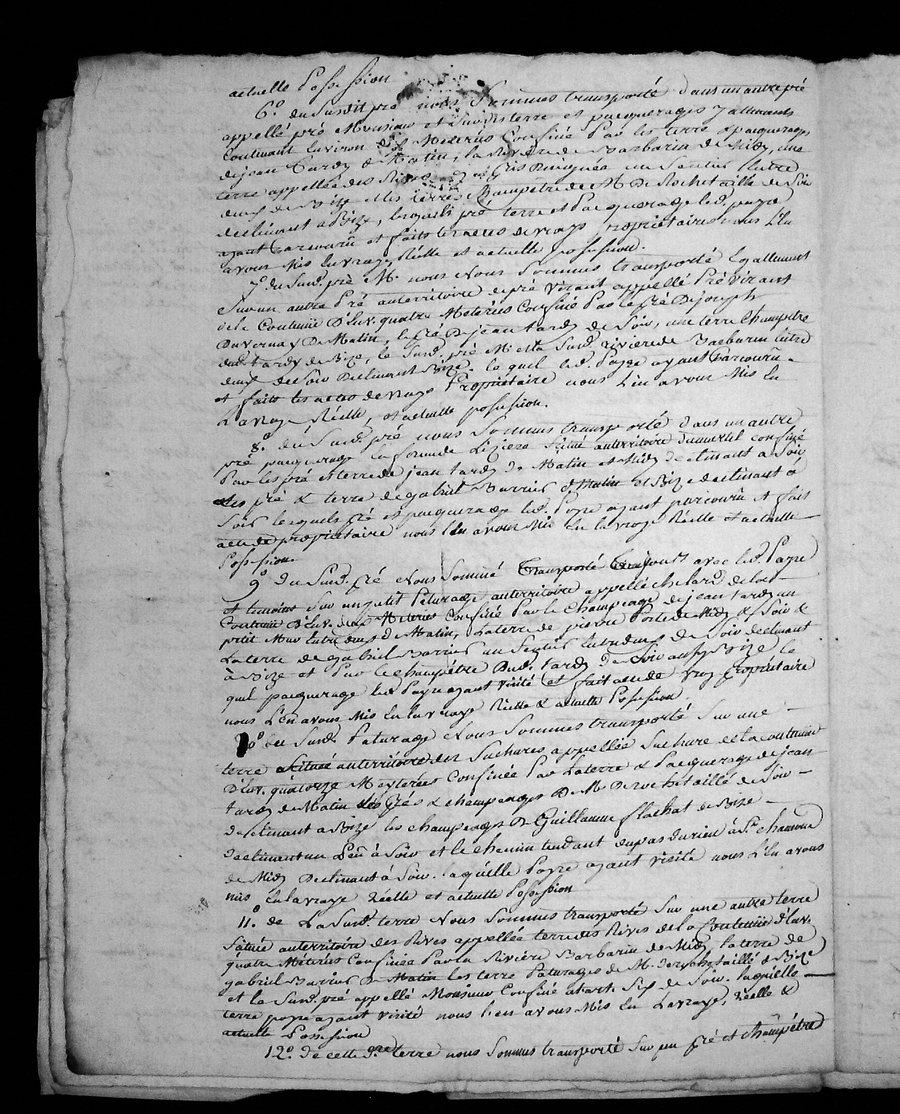 actuelle Possession
6°. du Susdit pré nous Sommes transporté dans un autre pré
appellé pré Monsieur et Sur des terre et paquerages y attenants
Contenant Environ Méteriés Confiné Par les terre & paquerages
de jean Tardy de Matin, la Rivière de Barbarin de Midy, une
terre appellée des Rives un Sentier Entre
deux de Bize et les terres Champêtre de M. De Rochetaillé de Soir
declinant à Bize, lesquels pré terre et Paquerage led. payre
ayant Parcouru et faits les actes de vrays propriétaires nous L'en
avons Mis En vraye Réelle et actuelle possession.
7°. du Susd. pré M. nous Nous Sommes transporté Egallement
Sur un autre Pré au territoire de pré Virant appellé Pré Virant
de la Contenüe D'Env. quatre Méteriés Confiné Par le Pré De joseph
Duvernay De Matin, le Pré De jean tardy de Soir, une terre Champêtre
dud. tardy de Bize, le Susd. pré M. et la Susd. rivière de Barbarin Entre
deux de Soir Declinant Bize. le quel led. Payre ayant Parcouru
et faits les actes de vrays Propriétaire nous L'en avons Mis En
La vraye Réelle, et actuelle possession.
8°. du Susd. pré nous Sommes transporté dans un autre
pré paquerage Situé au territoire du confiné
Par les pré et terre de jean tardy de Matin et Midy declinant à Soir,
Les pré & terre de gabriel Barrier de Matin et Bize declinant à
Soir lesquels Pré et paquerage led. Payre ayant parcouru et fait
acte de propriétaire nous l'en avons Mis En la vraye Réelle et actuelle
Possession.
9°. Du Susd. Pré Nous Sommes Transporté avec led. Payre
et temoins Sur un petit Paturage au territoire appellé de la
Contenüe D'Env. deux Méteriés Confiné Par le Champeage de jean tardy un
petit Mur Entre deux de Matin, La terre de pierre de Midy & Soir &
La terre de gabriel Barrier un Sentier Entre deux de Soir declinant
à Bize et Par le champêtre Dud. Tardy de Soir aussy Bize le
quel paquerage led. Payre ayant visité et fait acte de vray Propriétaire
nous L'en avons Mis En la vraye Réelle & actuelle Possession.
10°. du Susd. Paturage Nous Sommes transporté Sur une
terre Située au territoire des Suchures appellée Suchure de la Contenüe
D'Env. quatorze Meyterées Confinée Par La terre & Paquerage de jean
tardy de Matin Les Prés & champeages De M. De rochetaillé de Soir
declinant à Bize les champeages De Guillaume flachat de Bize
declinant un Peu à Soir et le chemin tendant à St. Chamond
de Midy Declinant à Soir. laquelle Payre ayant visité nous L'En avons
mis En la vraye Réelle et actuelle Possession
11°. de La Susd. terre Nous Sommes transporté Sur une autre terre
Située au territoire des Rives appellée terre des Rives de la Contenüe d'Env.
quatre Méteriés Confinée Par la Rivière Barbarin de Midy, la terre de
gabriel Barrier de Matin les terre Paturages de M. de rochetaillé de Bize
et la Susd. pré appellé Monsieur Confiné à de Soir. laquelle
terre payre ayant visité nous l'en avons Mis En La vraye, Réelle &
actuelle Possession
12°. de cette dre terre nous Sommes transporté Sur un Pré et champêtre